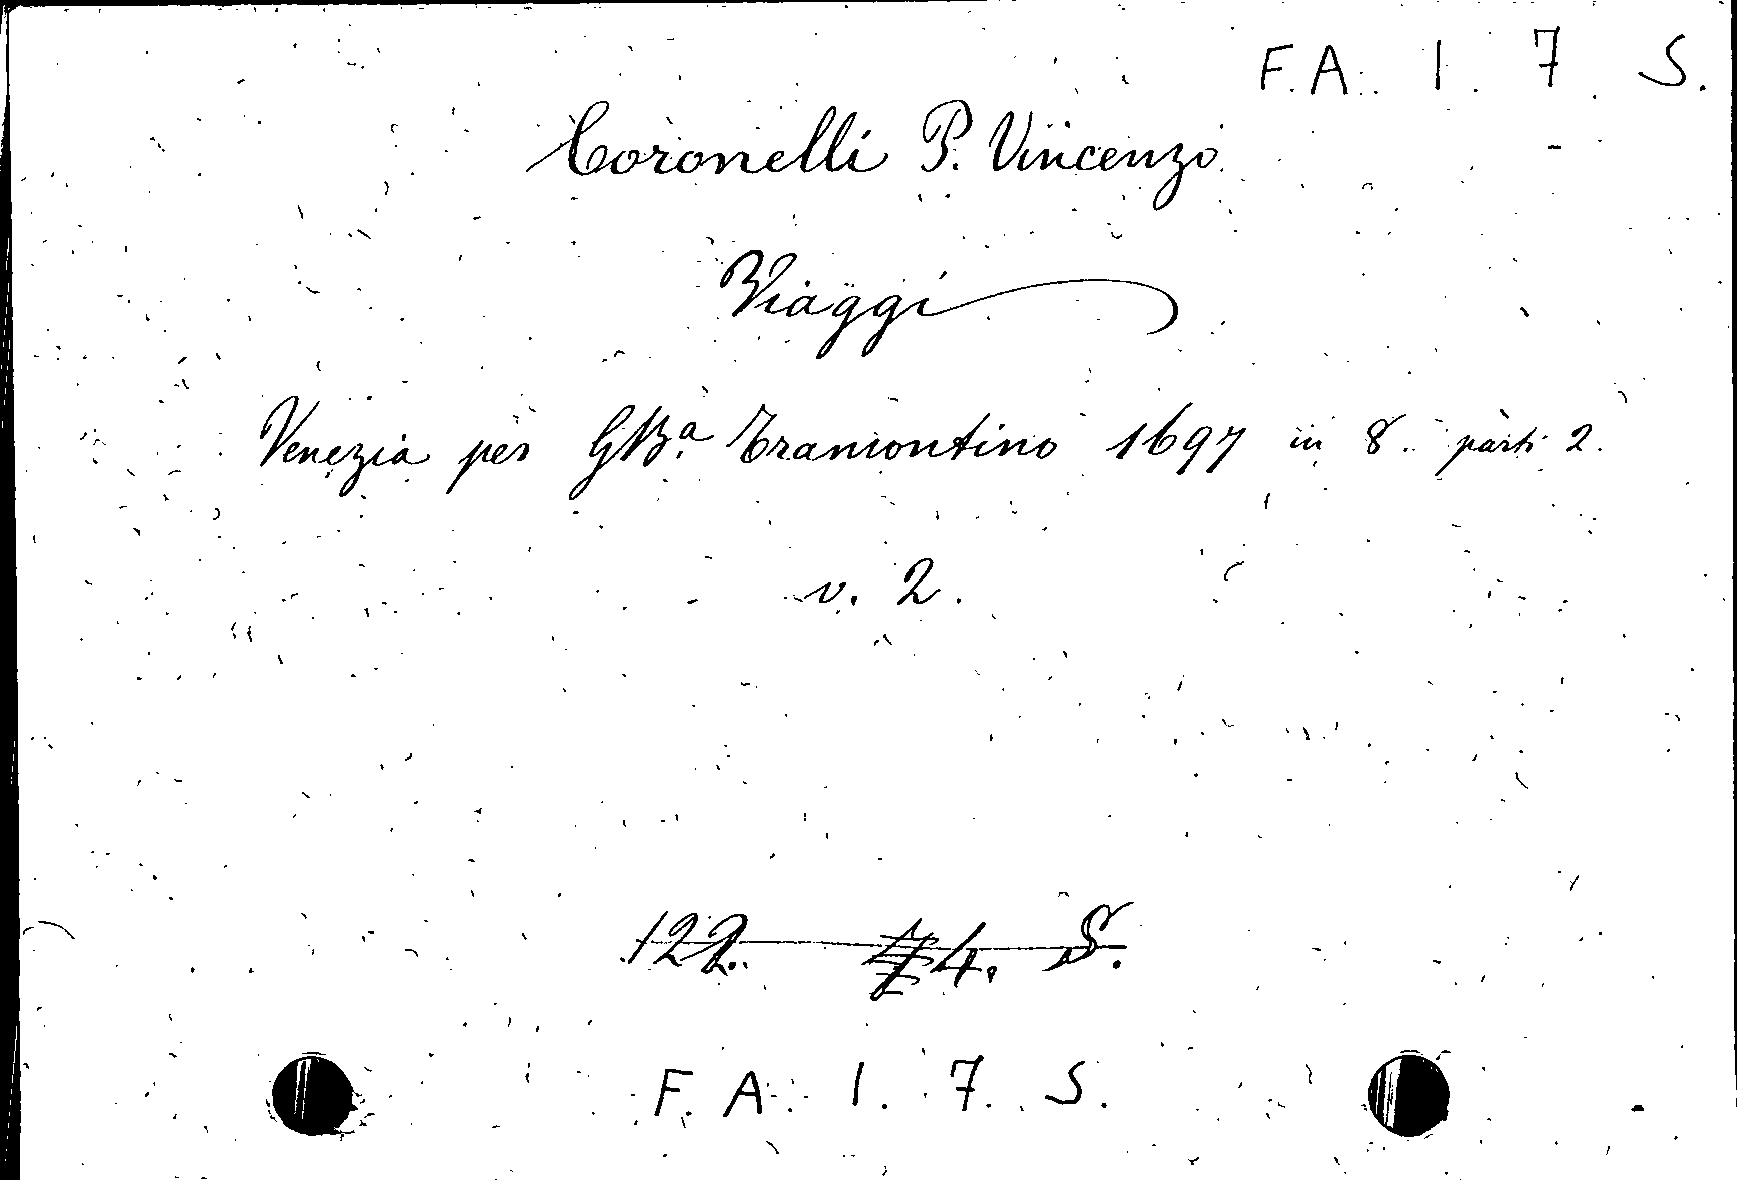 F. A. I. 7. S.
Coronelli P. Vincenzo
Viaggi
Venezia per GBa. Tramontino 1697 in 8. parti 2.
v. 2.
122. 74. S.
F. A. I. 7. S.